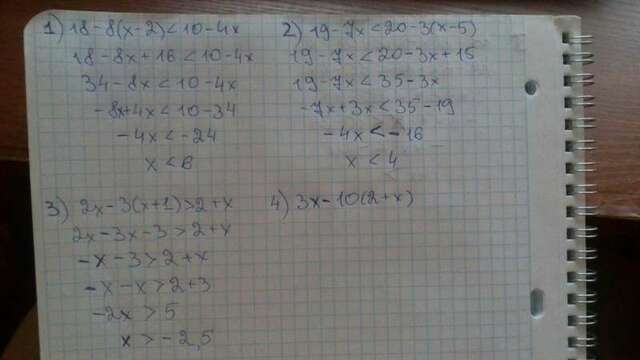 1) 18-8(x-2)<10-4x
18-8x+16<10-4x
34-8x<10-4x
-8x+4x<10-34
-4x<-24
x<6
2) 19-7x<20-3(x-5)
19-7x<20-3x+15
19-7x<35-3x
-7x+3x<35-19
-4x<-16
x<4
3) 2x-3(x+1)>2+x
2x-3x-3>2+x
-x-3>2+x
-x-x>2+3
-2x>5
x>-2,5
4) 3x-10(2+x)